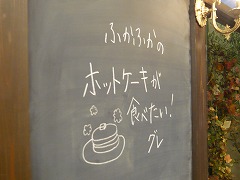 ふかふかの
ホットケーキが
食べたい!
グレ